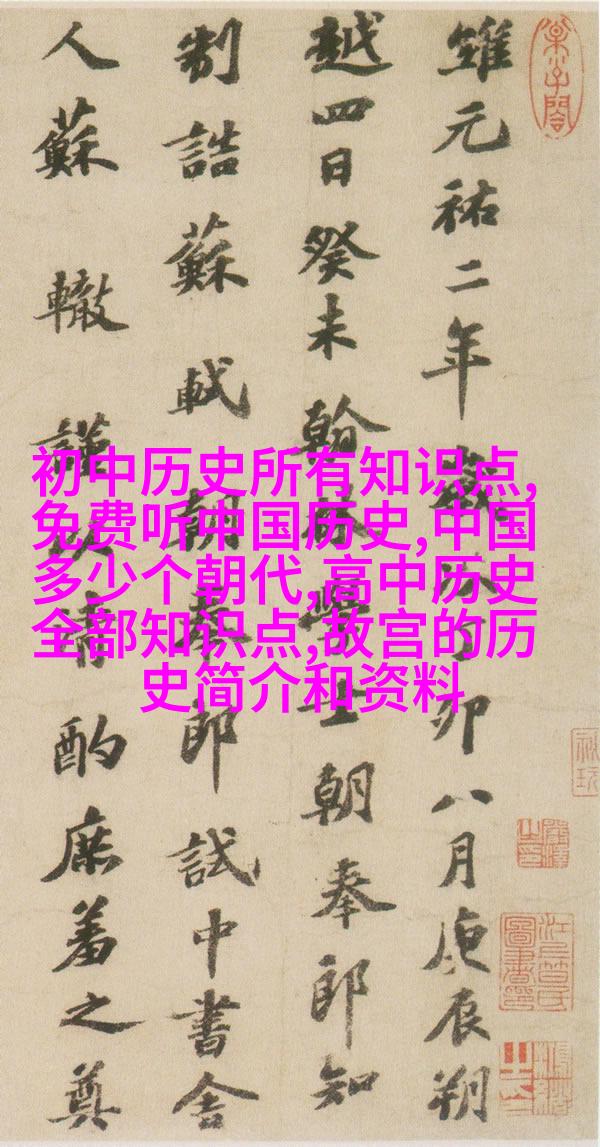 維元祐二年歲次丁卯八月庚辰朔
越四日癸未翰林學士朝奉郎知
制誥蘇軾朝奉郎試中書舍
人蘇轍謹以清酌庶羞之奠
初中历史所有知识点,
免费听中国历史,中国
多少个朝代,高中历史
全部知识点,故宫的历
史简介和资料